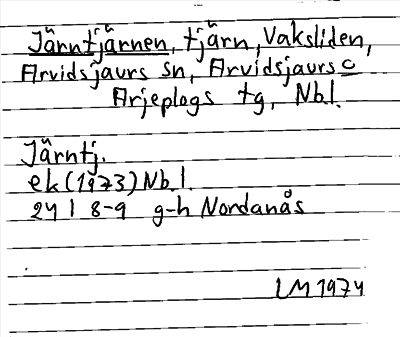 Järntjärnen, tjärn, Vaksliden,
Arvidsjaurs sn, Arvidsjaurs o
Arjeplogs tg, Nb.l.
Järntj.
ek (1973) Nb.l.
24 I 8-9 g-h Nordanås
LM 1974